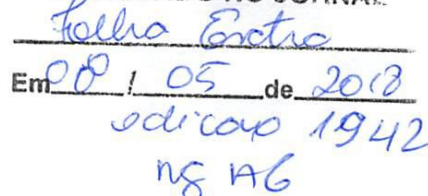 JORNAL
Folha Extra
Em 08 / 05 de 2018
edicao 1942
pg A6